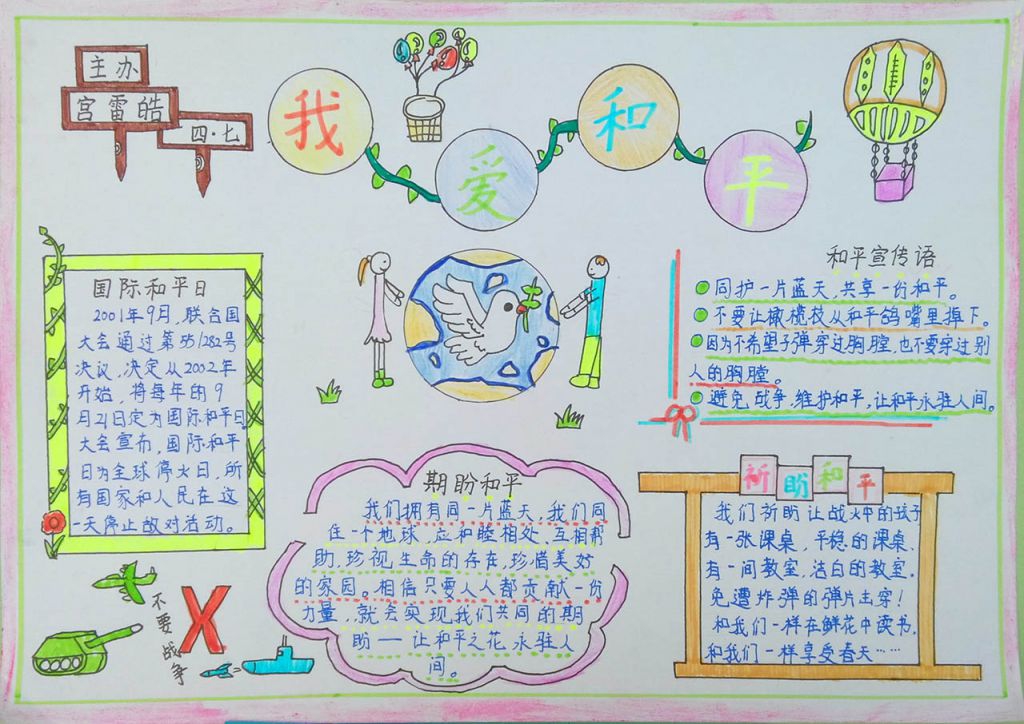 主办
宫雷皓
四·七
我爱和平
国际和平日
2001年9月,联合国
大会通过第55/282号
决议,决定从2002年
开始,将每年的9
月21日定为国际和平日
大会宣布,国际和平
日为全球停火日,所
有国家和人民在这
一天停止敌对活动。
和平宣传语
同护一片蓝天,共享一份和平。
不要让橄榄枝从和平鸽嘴里掉下。
因为不希望子弹穿过胸膛,也不要穿过别
人的胸膛。
避免战争,维护和平,让和平永驻人间。
期盼和平
我们拥有同一片蓝天,我们同
住一个地球,应和睦相处,互相帮
助,珍视生命的存在,珍惜美好
的家园。相信只要人人都贡献一份
力量,就会实现我们共同的期
盼——让和平之花永驻人
间。
祈盼和平
我们祈盼让战火中的孩子
有一张课桌,平稳的课桌、
有一间教室,洁白的教室。
免遭炸弹的弹片击穿!
和我们一样在鲜花中读书,
和我们一样享受春天……
不要战争